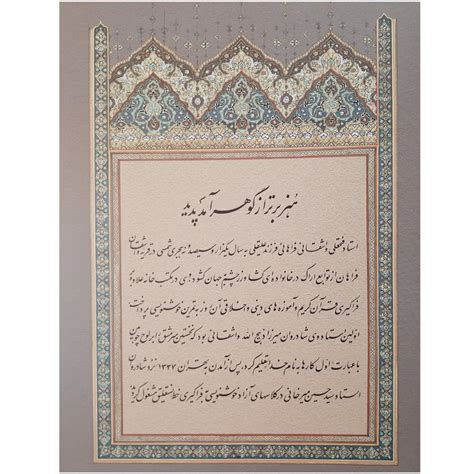 هنر برتر از گوهر آمد پدید
استاد فتحعلی واشقانی فراهانی فرزند علیقلی به سال یکهزار و سیصد و هجری شمسی در قریه واشقان
فراهان از توابع اراک در خانواده‌ای کشاورز چشم به جهان گشود وی در مکتب خانه علاوه بر
فراگیری قرآن کریم و آموزه‌های دینی و اخلاقی آن روز به تمرین خوشنویسی پرداخت
اولین استاد وی شادروان میرزا ذبیح الله واشقانی بود که نخستین سرمشق را بر لوح چوبین
با عبارت اول کارها به نام خدا تعلیم کرد، پس از آمدن به تهران ۱۳۲۷ نزد شادروان
استاد سید حسین میرخانی در کلاسهای آزاد خوشنویسی به فراگیری خط نستعلیق مشغول گردید